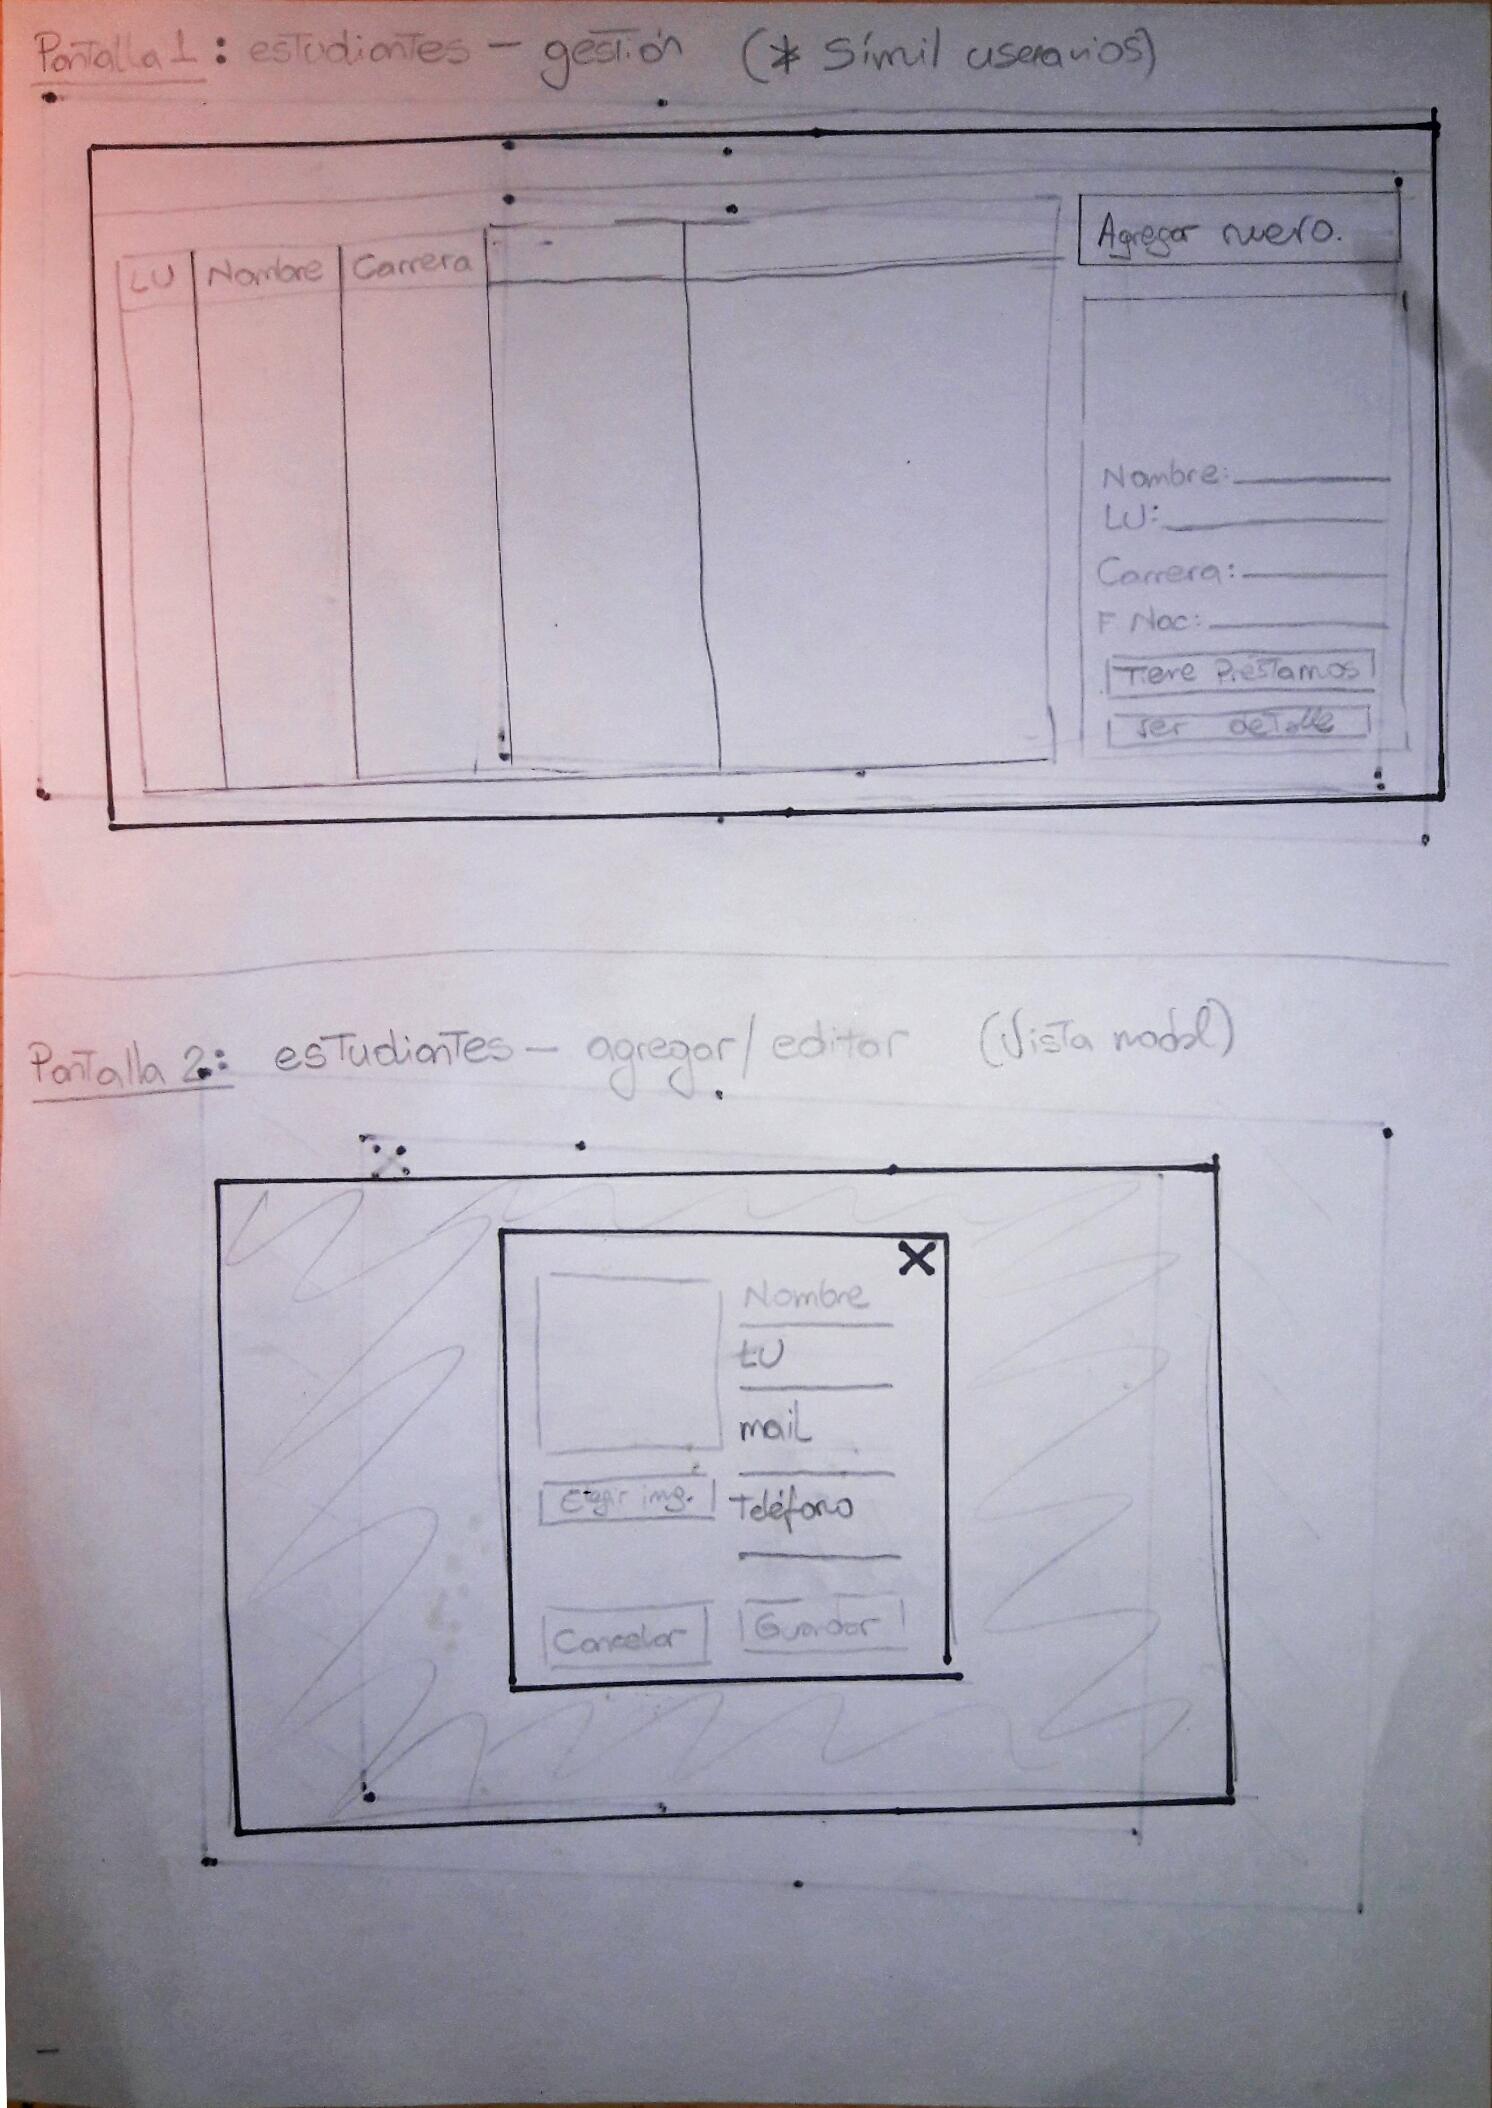 Pantalla 1: estudiantes - gestión (* Símil userarios)
LU Nombre Carrera
Agregar nuevo.
Nombre:
LU:
Carrera:
F Nac:
Tiene Préstamos
ver detalle
Pantalla 2: estudiantes - agregar/editar (Vista modal)
X
Nombre
LU
mail
Teléfono
Elegir img.
Cancelar Guardar